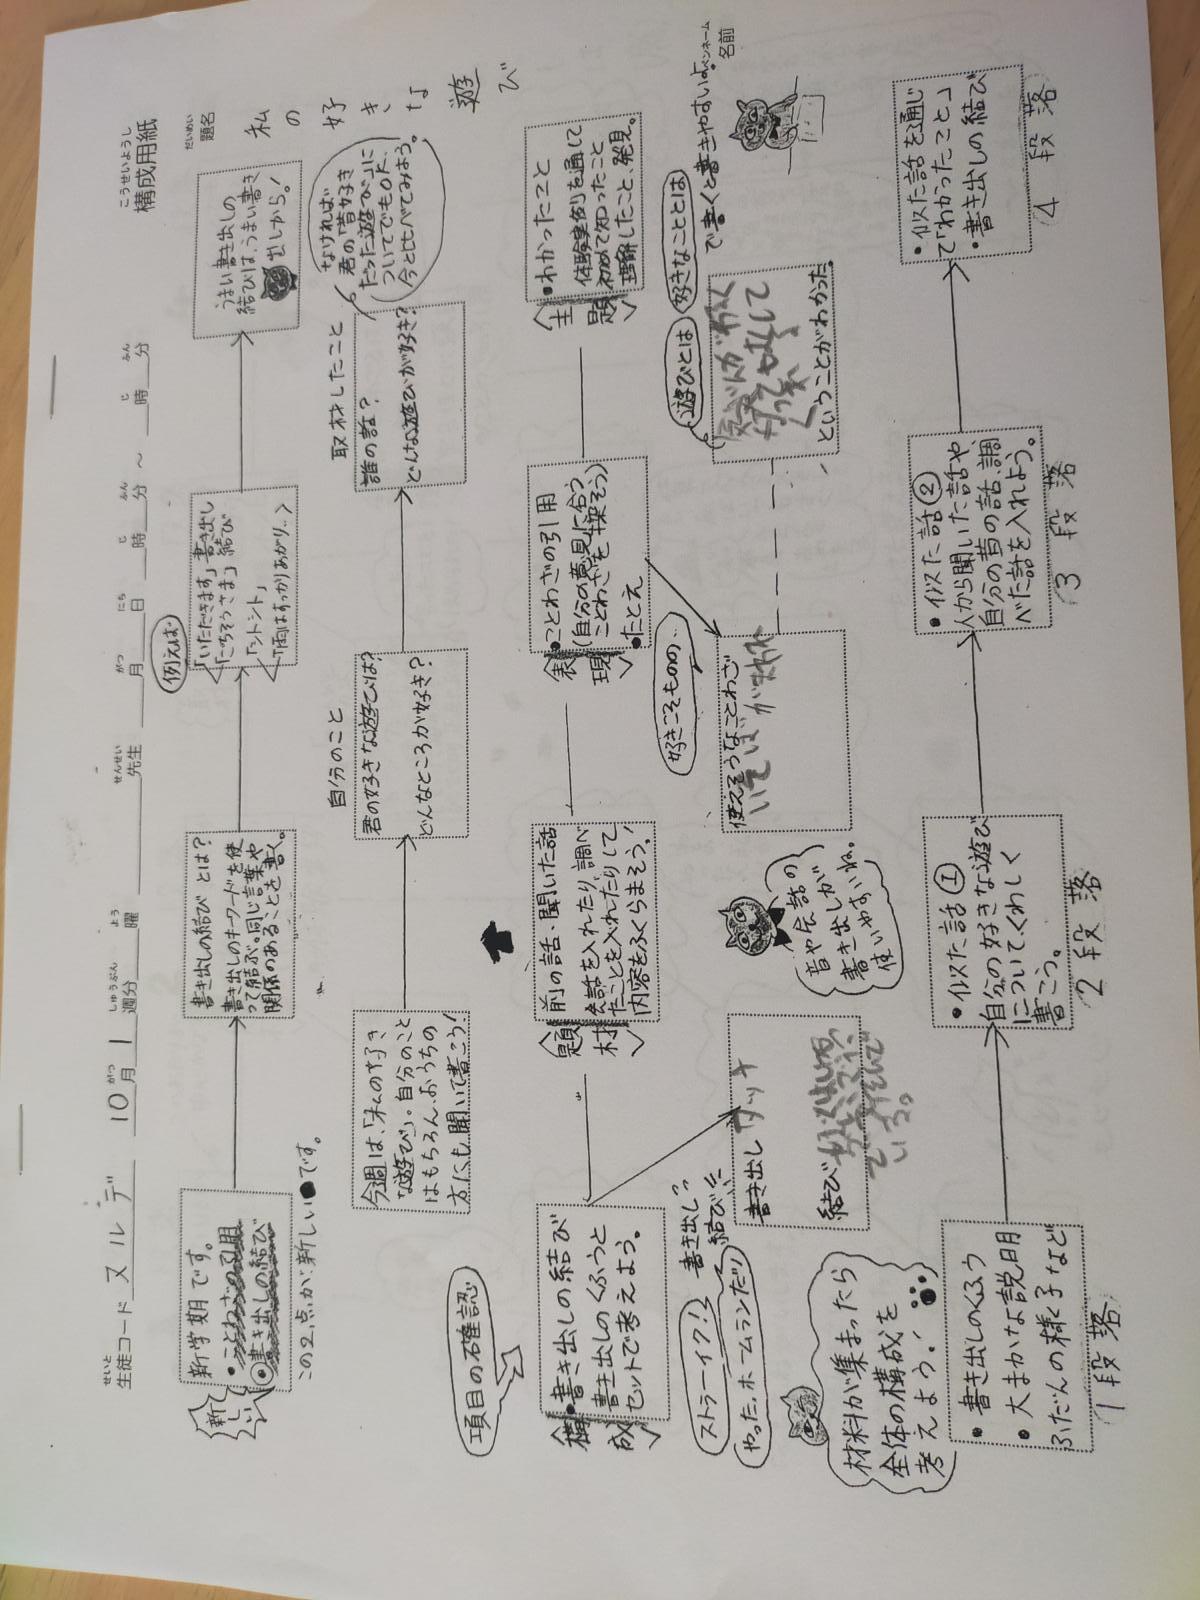 構成用紙
こうせいようし
生徒コード ヌルデ 10月1週分 曜 先生 月 日 時 分 ～ 時 分
せいと がつ しゅうぶん よう せんせい がつ にち じ ふん じ ふん
題名
だいめい
私の好きな遊び
名前
ペンネーム
新しい
新学期です。
・ことわざの引用
・書き出しの結び
この2点が新しい●です。
書き出しの結び とは？
書き出しのキーワードを使
って結ぶ。同じ言葉や
関係のあることを書く。
例えば・
「いただきます」書き出し
「ごちそうさま」結び
「シトシト」
うまい書き出しの
結びは、うまい書き
出しから。！
今週は、「私の好き
な遊び」。自分のこと
はもちろん、おうちの
方にも聞いて書こう！
自分のこと
君の好きな遊びは？
どんなところが好き？
取材したこと
誰の話？
どんな遊びが好き？
なければ
君の「昔好き
だった遊び」に
ついてでもOK.
今と比べてみよう。
項目の確認
構成
・書き出しの結び
書き出しのくふうと
セットで考えよう。
題材
前の話、聞いた話
会話を入れたり、調べ
たことを入れたりして
内容をふくらまそう！
表現
・ことわざの引用
(自分の意見に合う
ことわざを探そう)
・たとえ
主題
・わかったこと
体験実例を通して
初めて知ったこと
理解したこと、発見。
ストラーイク！
やった、ホームランだ！
書き出し？
結び!!
書き出し
結び
音や会話の
書き出しが
使いやすいね。
好きこそものの、、
使えそうなことわざ
いそがばまわれ
遊びとは
好きなこととは
で書くと書きやすいよ。
ということがわかった。
材料が集まったら
全体の構成を
考えよう！
・書き出しのくふう
・大まかな説明
ふだんの様子など
1段落
・似た話①
自分の好きな遊び
についてくわしく
書こう。
2段落
・似た話②
人から聞いた話や、
自分の昔の話、調
べた話を入れよう。
3段落
・似た話を通じ
て「わかったこと」
・書き出しの結び
4段落